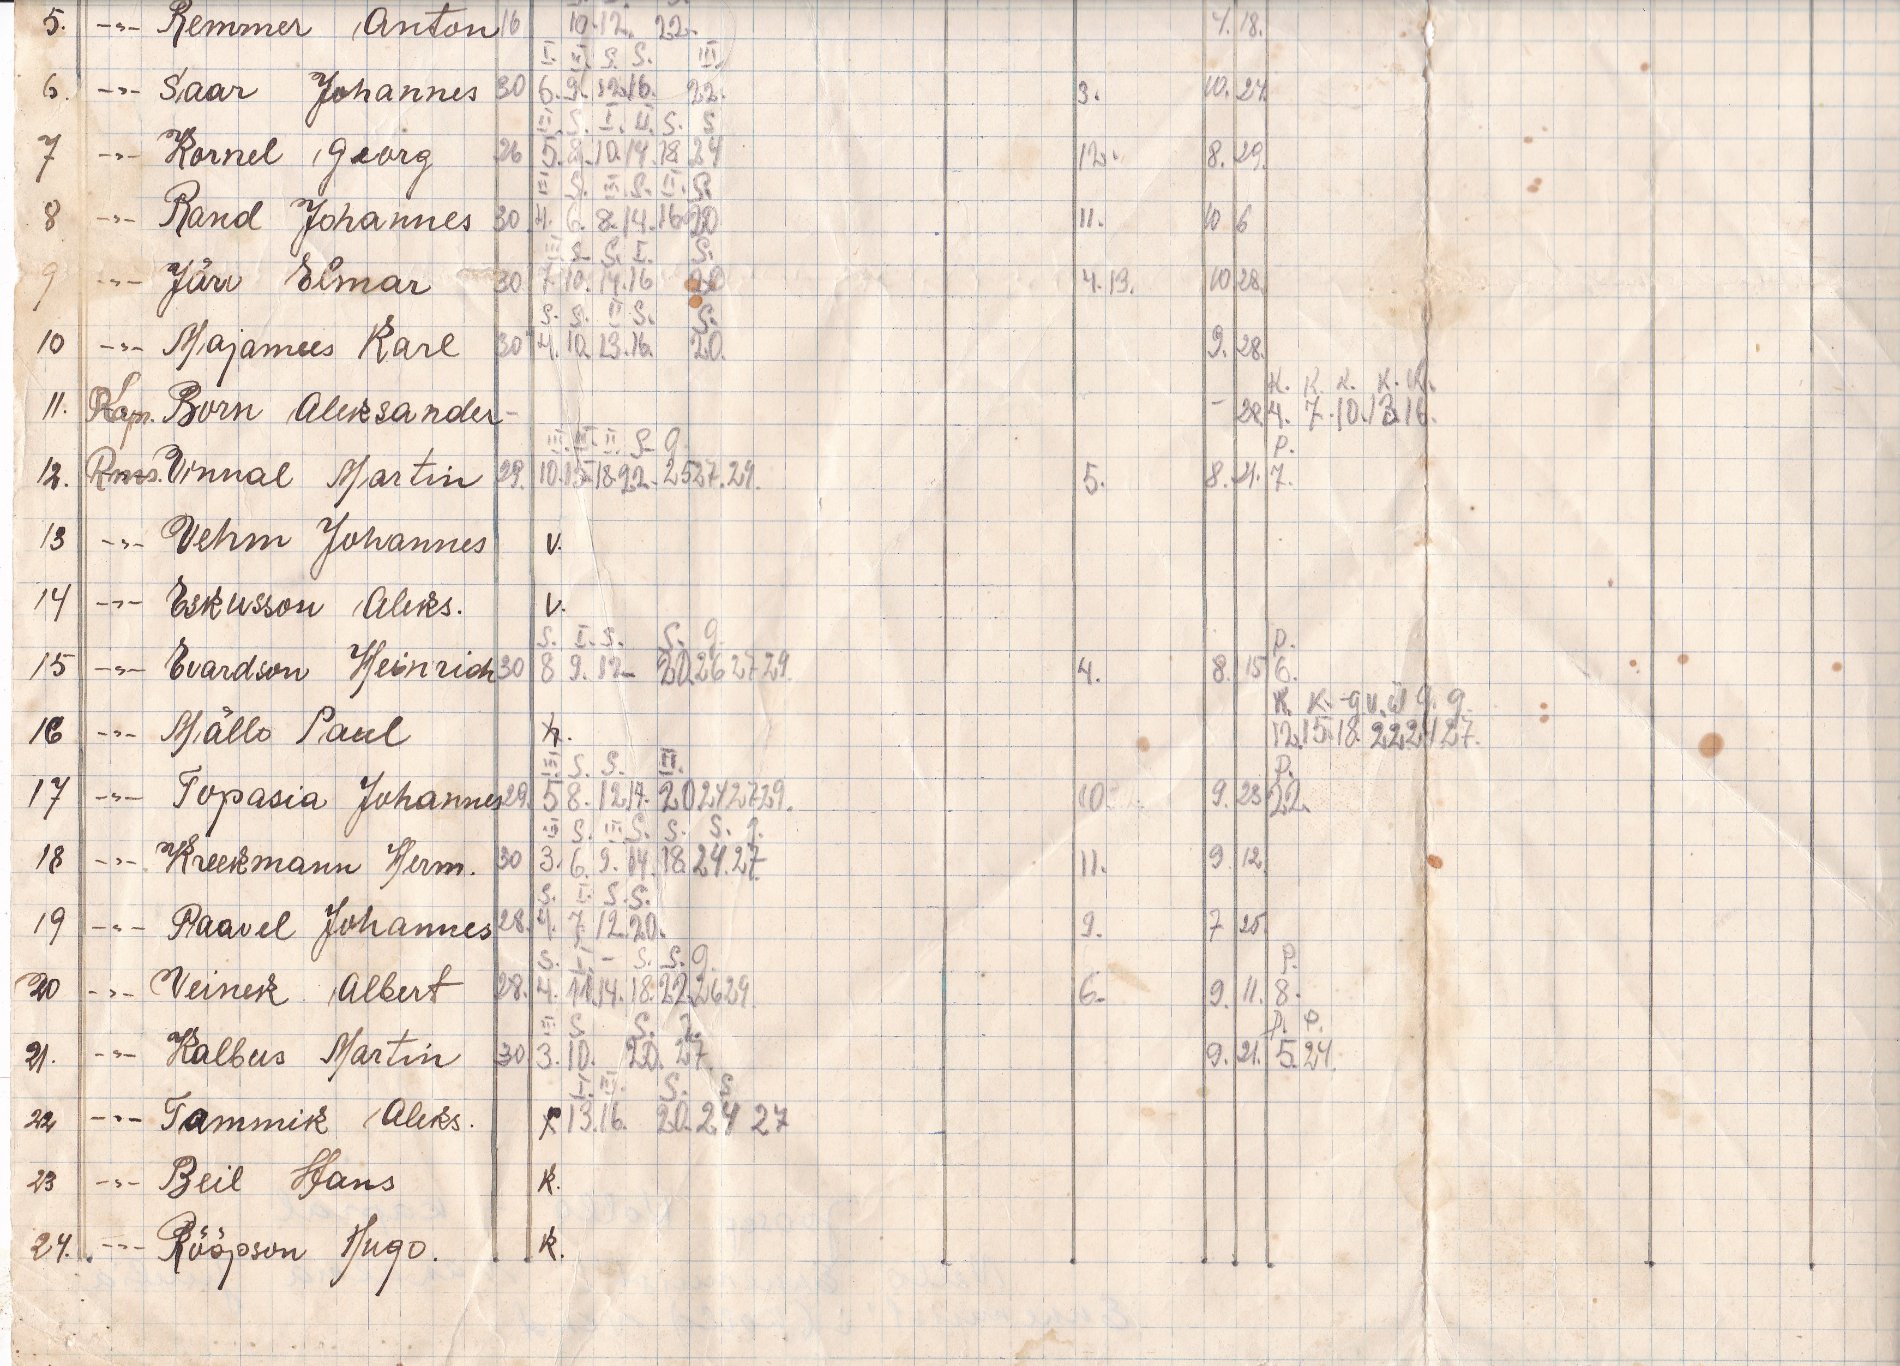 5. -"- Remmer Anton 16 10. 12. 22. 7. 18.
I. II. S. S. III.
6. -"- Saar Johannes 30 6. 9. 12. 16. 22. 3. 10. 24.
III. S. I. II. S. S
7 -"- Kornel Georg 26 5. 8. 10. 14. 18. 24 12. 8. 29.
II S. III. S. II. S.
8 -"- Rand Johannes 30 4. 6. 8. 14. 16. 20 11. 10 6
III S. S. I. S.
9 -"- Järv Elmar 30 7. 10. 14. 16 20 4. 13. 10. 28.
S. S. II S. S.
10 -"- Majamees Karl 30 4. 10. 13. 16. 20. 9. 28.
K. K. K. K. K.
11. Kapr. Born Aleksander - - 28. 4. 7. 10. 13. 16.
III. III. II S. 9. P.
12. Rms. Vinnal Martin 29. 10. 15. 18. 22. 25 27. 29. 5. 8. 21. 7.
13 -"- Vehm Johannes v.
14 -"- Eskusson Aleks. v.
S. I. S. S. 9. P.
15 -"- Evardson Heinrich 30 8 9. 12. 20. 26 27 29. 4. 8. 15 6.
K. K. 9. 9.
16 -"- Mällo Paul 12. 15. 18. 22 24 27.
III. S. S. II. P.
17 -"- Topasia Johannes 29. 5 8. 12. 14. 20 24 27 29. 10. 9. 23 22.
III S. III S. S. S. 9.
18 -"- Kreekmann Herm. 30 3. 6. 9. 14. 18. 24. 27 11. 9. 12.
S. I. S. S.
19 -"- Paavel Johannes 28. 4. 7. 12. 20. 9. 7 25
S. I - S. S. 9. P.
20 -"- Veinek Albert 28. 4. 11. 14. 18. 22. 26 29. 6. 9. 11. 8.
III S. S. P. P.
21. -"- Kalbus Martin 30 3. 10. 20. 27. 9. 21. 5. 24.
I. III. S. S
22 -"- Tammik Aleks. 13. 16. 20. 24 27
23 -"- Beil Hans K.
24. -"- Rööpson Hugo. K.